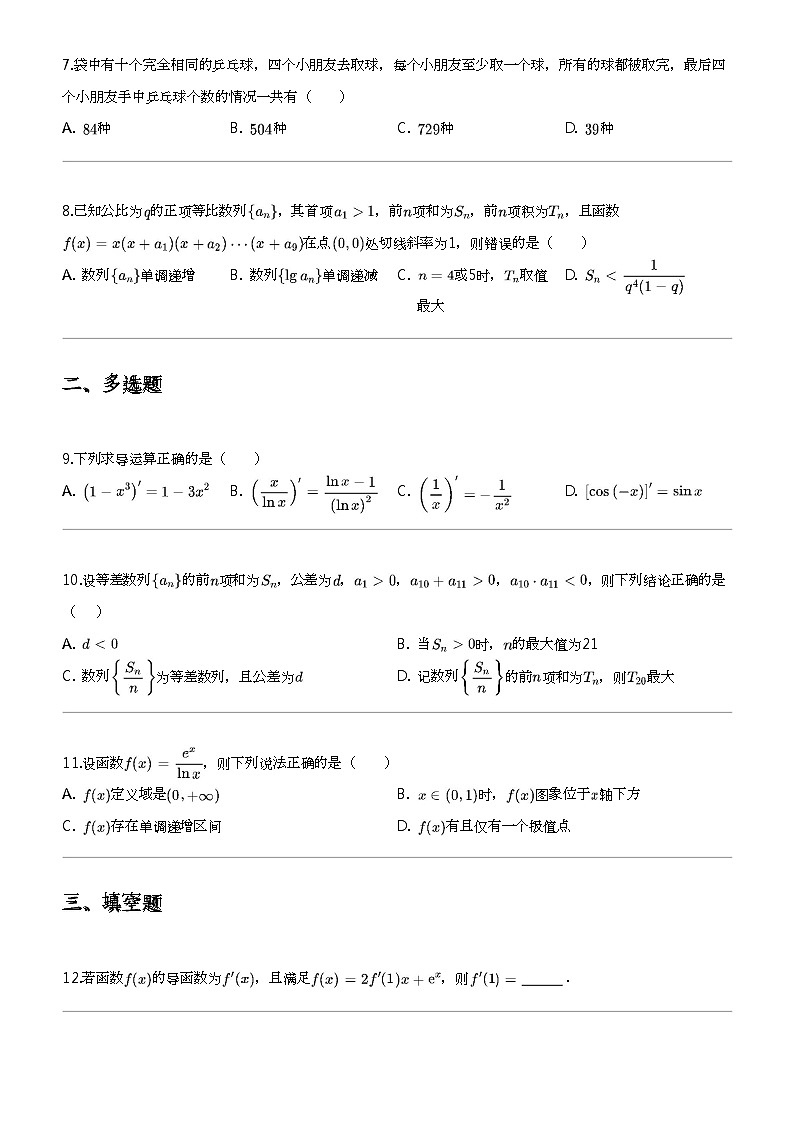 7.袋中有十个完全相同的乒乓球，四个小朋友去取球，每个小朋友至少取一个球，所有的球都被取完，最后四
个小朋友手中乒乓球个数的情况一共有（  ）
A. 84种 B. 504种 C. 729种 D. 39种
8.已知公比为q的正项等比数列{aₙ}，其首项a₁ > 1，前n项和为Sₙ，前n项积为Tₙ，且函数
f(x) = x(x + a₁)(x + a₂)···(x + a₉)在点(0,0)处切线斜率为1，则错误的是（  ）
A. 数列{aₙ}单调递增 B. 数列{lg aₙ}单调递减 C. n = 4或5时，Tₙ取值 D. Sₙ < 1/(q⁴(1 − q))
最大
二、多选题
9.下列求导运算正确的是（  ）
A. (1 − x³)′ = 1 − 3x² B. (x/ln x)′ = (ln x − 1)/(ln x)² C. (1/x)′ = −1/x² D. [cos (−x)]′ = sin x
10.设等差数列{aₙ}的前n项和为Sₙ，公差为d，a₁ > 0，a₁₀ + a₁₁ > 0，a₁₀ · a₁₁ < 0，则下列结论正确的是
（  ）
A. d < 0 B. 当Sₙ > 0时，n的最大值为21
C. 数列{Sₙ/n}为等差数列，且公差为d D. 记数列{Sₙ/n}的前n项和为Tₙ，则T₂₀最大
11.设函数f(x) = eˣ/ln x，则下列说法正确的是（  ）
A. f(x)定义域是(0,+∞) B. x ∈ (0,1)时，f(x)图象位于x轴下方
C. f(x)存在单调递增区间 D. f(x)有且仅有一个极值点
三、填空题
12.若函数f(x)的导函数为f′(x)，且满足f(x) = 2f′(1)x + eˣ，则f′(1) = ______．